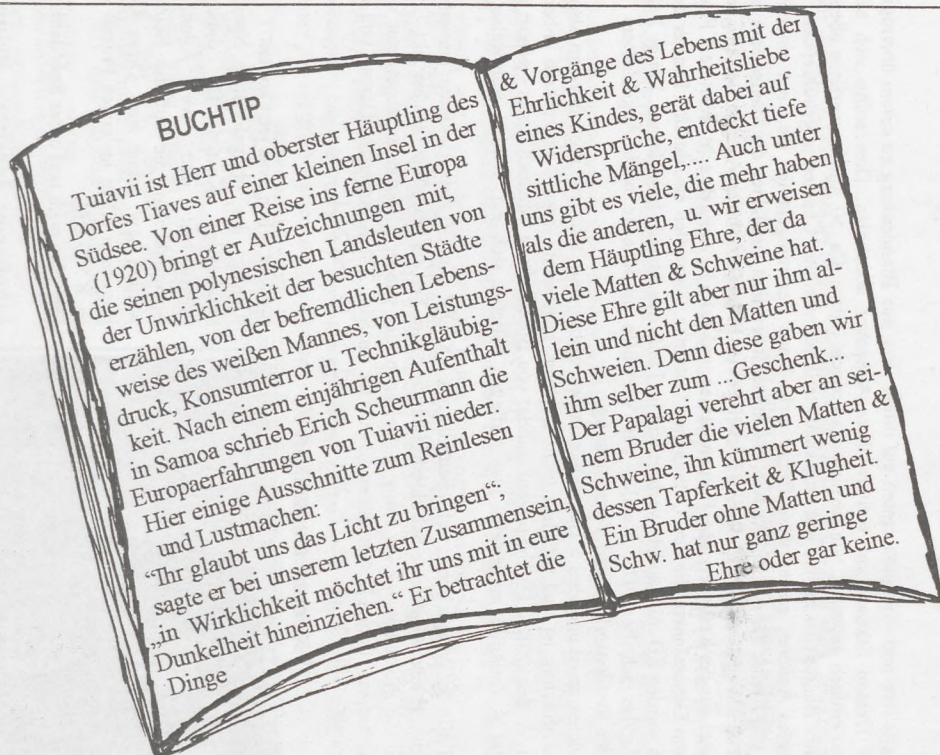 BUCHTIP
Tuiavii ist Herr und oberster Häuptling des
Dorfes Tiaves auf einer kleinen Insel in der
Südsee. Von einer Reise ins ferne Europa
(1920) bringt er Aufzeichnungen mit,
die seinen polynesischen Landsleuten von
der Unwirklichkeit der besuchten Städte
erzählen, von der befremdlichen Lebens-
weise des weißen Mannes, von Leistungs-
druck, Konsumterror u. Technikgläubig-
keit. Nach einem einjährigen Aufenthalt
in Samoa schrieb Erich Scheurmann die
Europaerfahrungen von Tuiavii nieder.
Hier einige Ausschnitte zum Reinlesen
und Lustmachen:
“Ihr glaubt uns das Licht zu bringen“,
sagte er bei unserem letzten Zusammensein,
„in Wirklichkeit möchtet ihr uns mit in eure
Dunkelheit hineinziehen.“ Er betrachtet die
Dinge
& Vorgänge des Lebens mit der
Ehrlichkeit & Wahrheitsliebe
eines Kindes, gerät dabei auf
Widersprüche, entdeckt tiefe
sittliche Mängel,.... Auch unter
uns gibt es viele, die mehr haben
als die anderen, u. wir erweisen
dem Häuptling Ehre, der da
viele Matten & Schweine hat.
Diese Ehre gilt aber nur ihm al-
lein und nicht den Matten und
Schweien. Denn diese gaben wir
ihm selber zum ...Geschenk...
Der Papalagi verehrt aber an sei-
nem Bruder die vielen Matten &
Schweine, ihn kümmert wenig
dessen Tapferkeit & Klugheit.
Ein Bruder ohne Matten und
Schw. hat nur ganz geringe
Ehre oder gar keine.